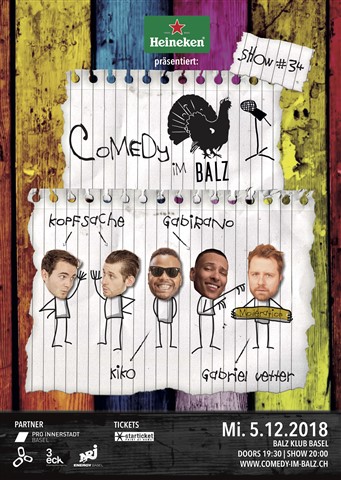 Heineken
präsentiert:
SHOW #34
COMEDY
iM BALZ
KOPFSACHE
GABiRANO
Moderation
KiKO
GABRiEL VETTER
PARTNER
PRO INNERSTADT
BASEL
3
eck
NRJ
ENERGY BASEL
TICKETS
starticket
Mi. 5.12.2018
BALZ KLUB BASEL
DOORS 19:30 | SHOW 20:00
WWW.COMEDY-IM-BALZ.CH